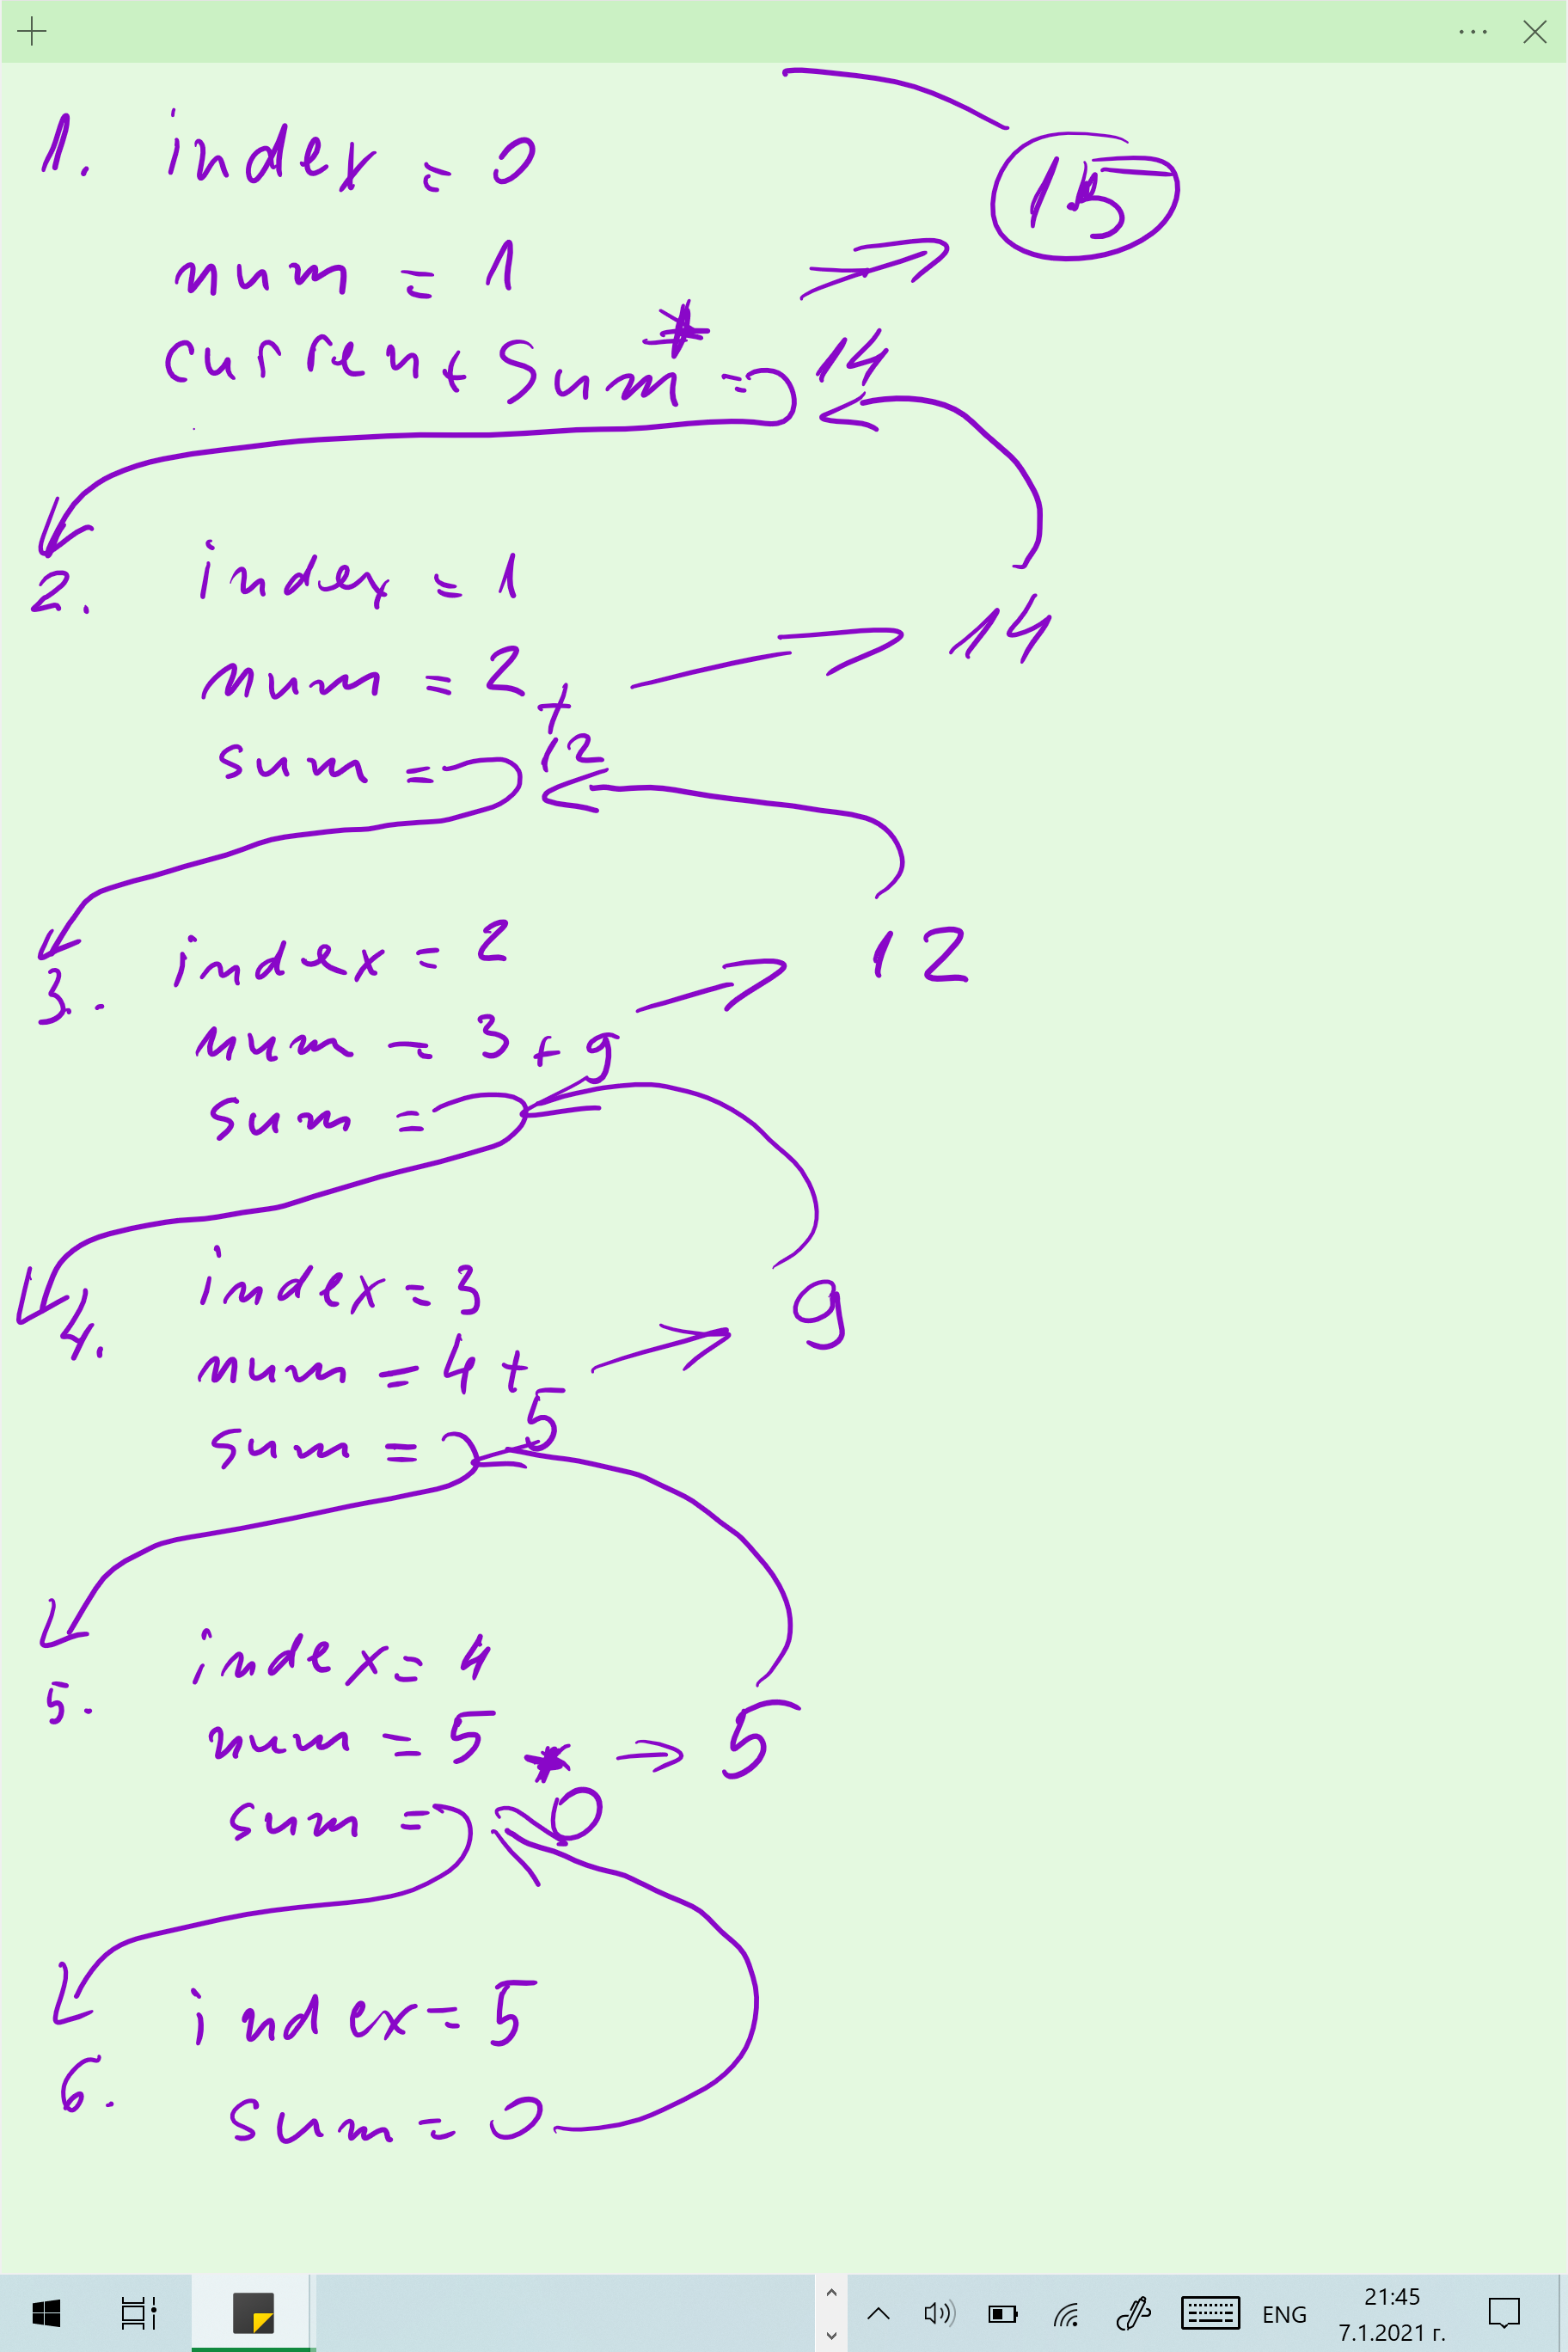 15
1. index = 0
num = 1
current Sum = 14
2. index = 1
14
num = 2 +
sum = 12
3. index = 2
12
num = 3 + 9
sum =
4. index = 3
9
num = 4 +
sum = 5
5. index = 4
num = 5 5
sum = 0
6. index = 5
sum = 0
ENG
21:45
7.1.2021 г.